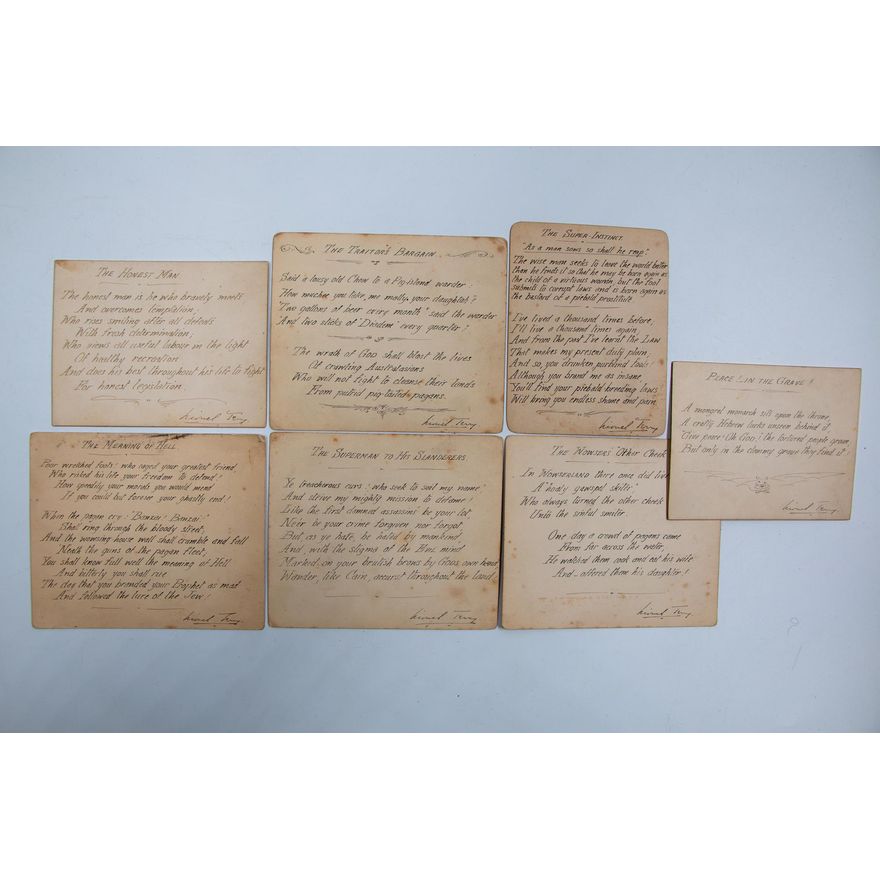 THE HONEST MAN.
The honest man is he who bravely meets
And overcomes temptation;
Who rises smiling after all defeats
With fresh determination;
Who views all useful labour in the light
Of healthy recreation
And does his best throughout his life to fight
For honest legislation.
Lionel Terry
THE TRAITOR'S BARGAIN.
Said a lousy old Chow to a Pig-island warder:
"How muchee you likee, me mally your daughtel?"
"Two gallons of beer every month" said the warder
"And two sticks of Diadim every quarter!"
The wrath of GOD shall blast the lives
Of crawling Australasians
Who will not fight to cleanse their lands
From putrid pig-tailed pagans.
Lionel Terry
THE SUPER-INSTINCT.
"As a man sows so shall he reap."
The wise man seeks to leave the world better
than he finds it so that he may be born again as
the child of a virtuous woman, but the fool
submits to corrupt laws and is born again as
the bastard of a piebald prostitute.
I've lived a thousand times before;
I'll live a thousand times again;
And from the past I've learnt the LAW
That makes my present duty plain;
And so, you drunken purblind fools!
Although you brand me as insane
You'll find your piebald breeding laws
Will bring you endless shame and pain.
Lionel Terry
PEACE! IN THE GRAVE!
A mongrel monarch sits upon the throne,
A crafty Hebrew lurks unseen behind it;
Give peace! Oh God,! the tortured people groan,
But only in the clammy grave they find it!
Lionel Terry
THE MEANING OF HELL.
Poor wretched fools! who caged your greatest friend
Who risked his life your freedom to defend!
How speedily your morals you would mend
If you could but foresee your ghastly end!
When the pagan cry "Banzai! Banzai!"
Shall ring through the bloody street,
And the wowsing house wall shall crumble and fall
'Neath the guns of the pagan fleet,
You shall know full well the meaning of Hell
And bitterly you shall rue
The day that you branded your Prophet as mad
And followed the lure of the Jew!
Lionel Terry
THE SUPERMAN TO HIS SLANDERERS.
Ye treacherous curs! who seek to soil my name
And drive my mighty mission to defame!
Like the first damned assassins be your lot,
Ne'er be your crime forgiven nor forgot,
But as ye hate, be hated by mankind,
And, with the stigma of the mind
Marked on your brutish brows by GOD's own hand
Wander, like Cain, accurst throughout the land.
Lionel Terry
THE WOWSERS' "OTHER CHEEK".
IN WOWSERLAND there once did live
A "hady yawspal skilti"
Who always turned the other cheek
Unto the sinful smiter.
One day a crowd of pagans came
From far across the water,
He watched them cook and eat his wife
And - offered them his daughter!
Lionel Terry